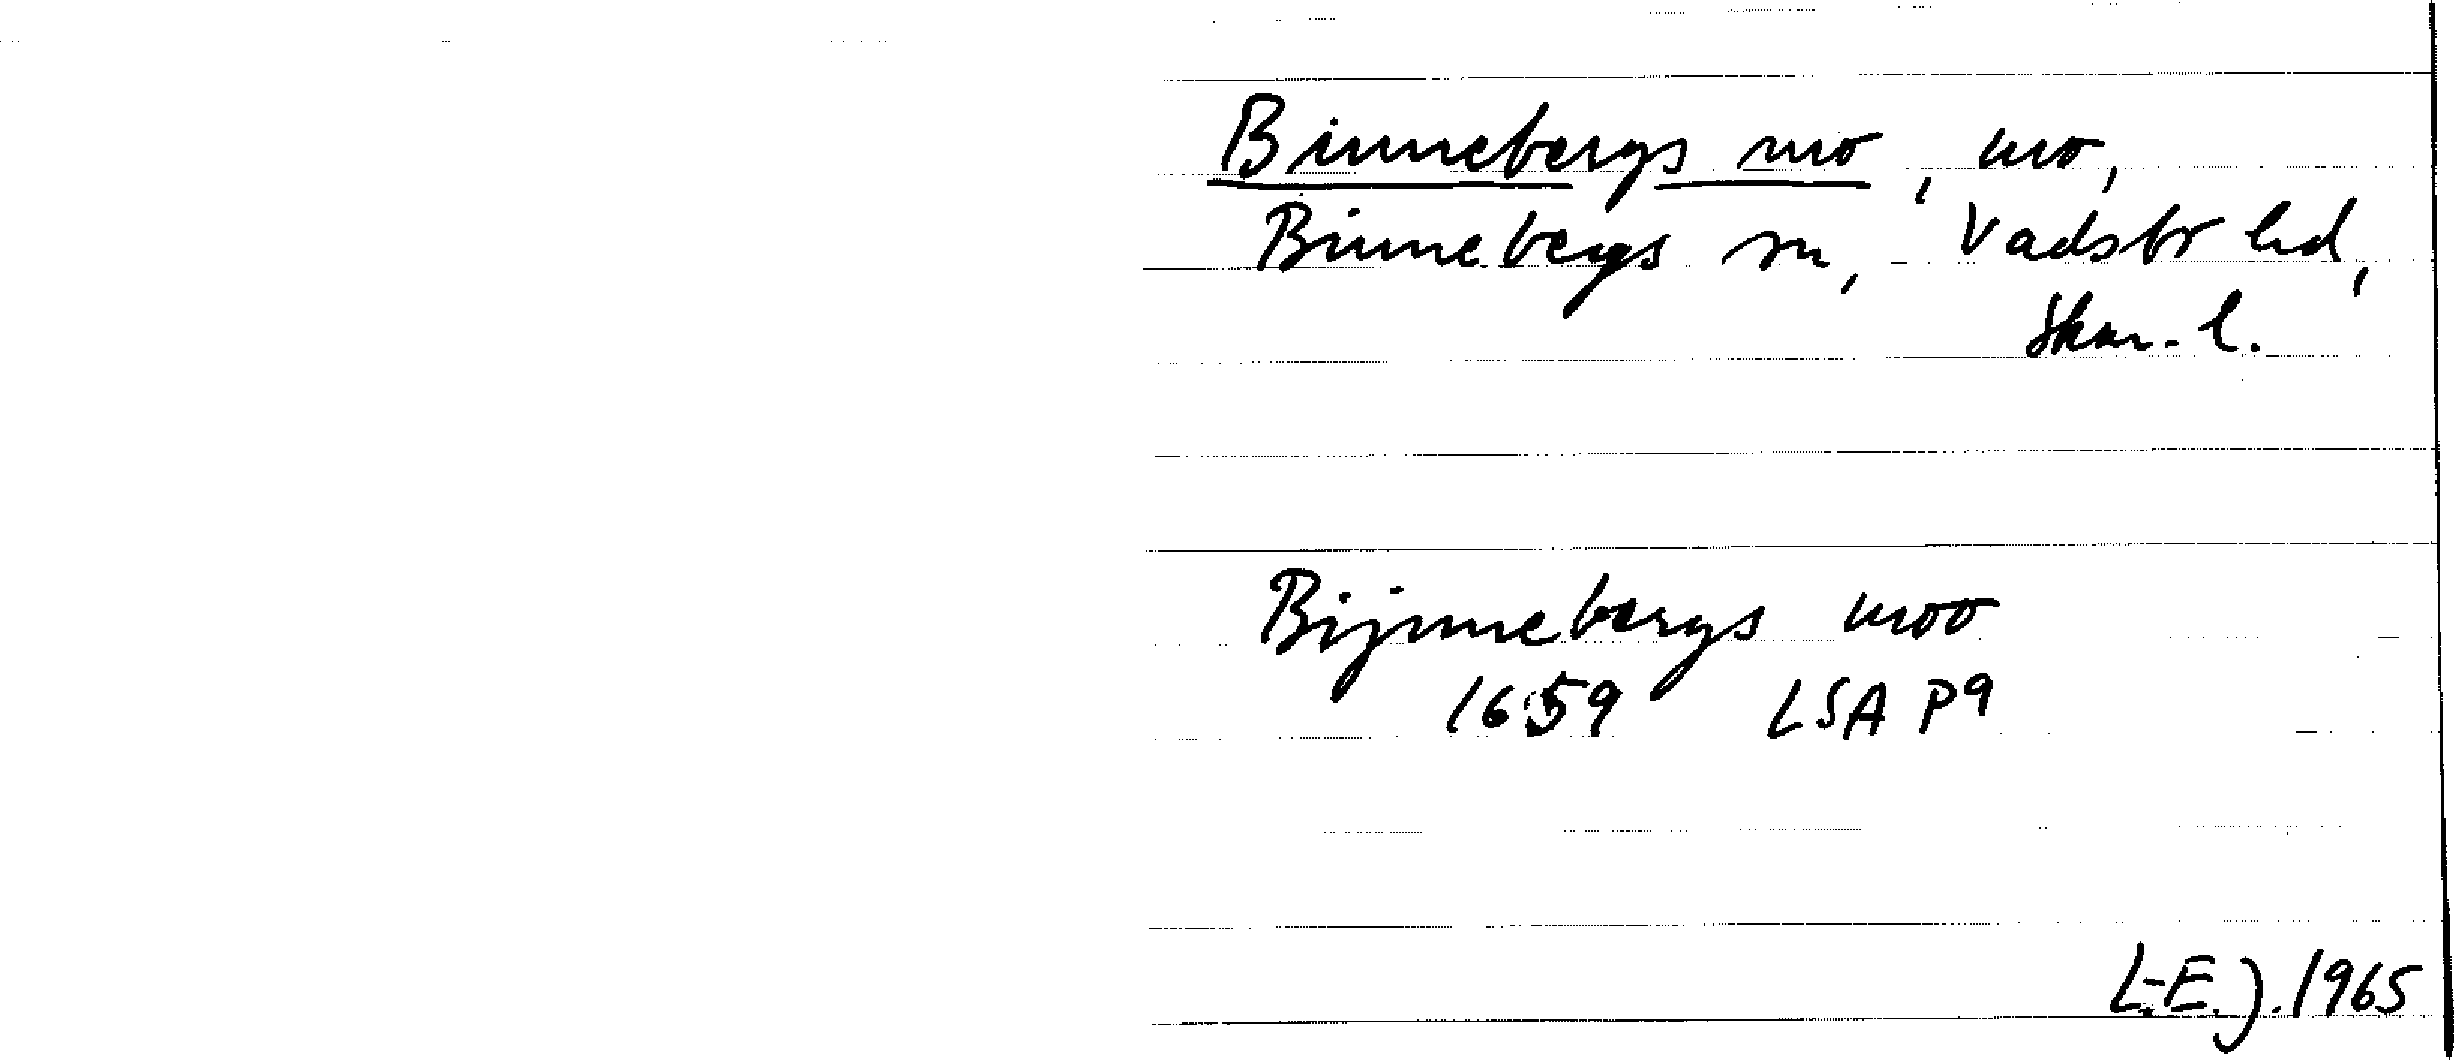 Binnebergs mo, mo,
Binnebergs sn, Vadsbr hd,
Skar. l.
Bijnnebergs moo
1659 LSA P9
L-E.J. 1965